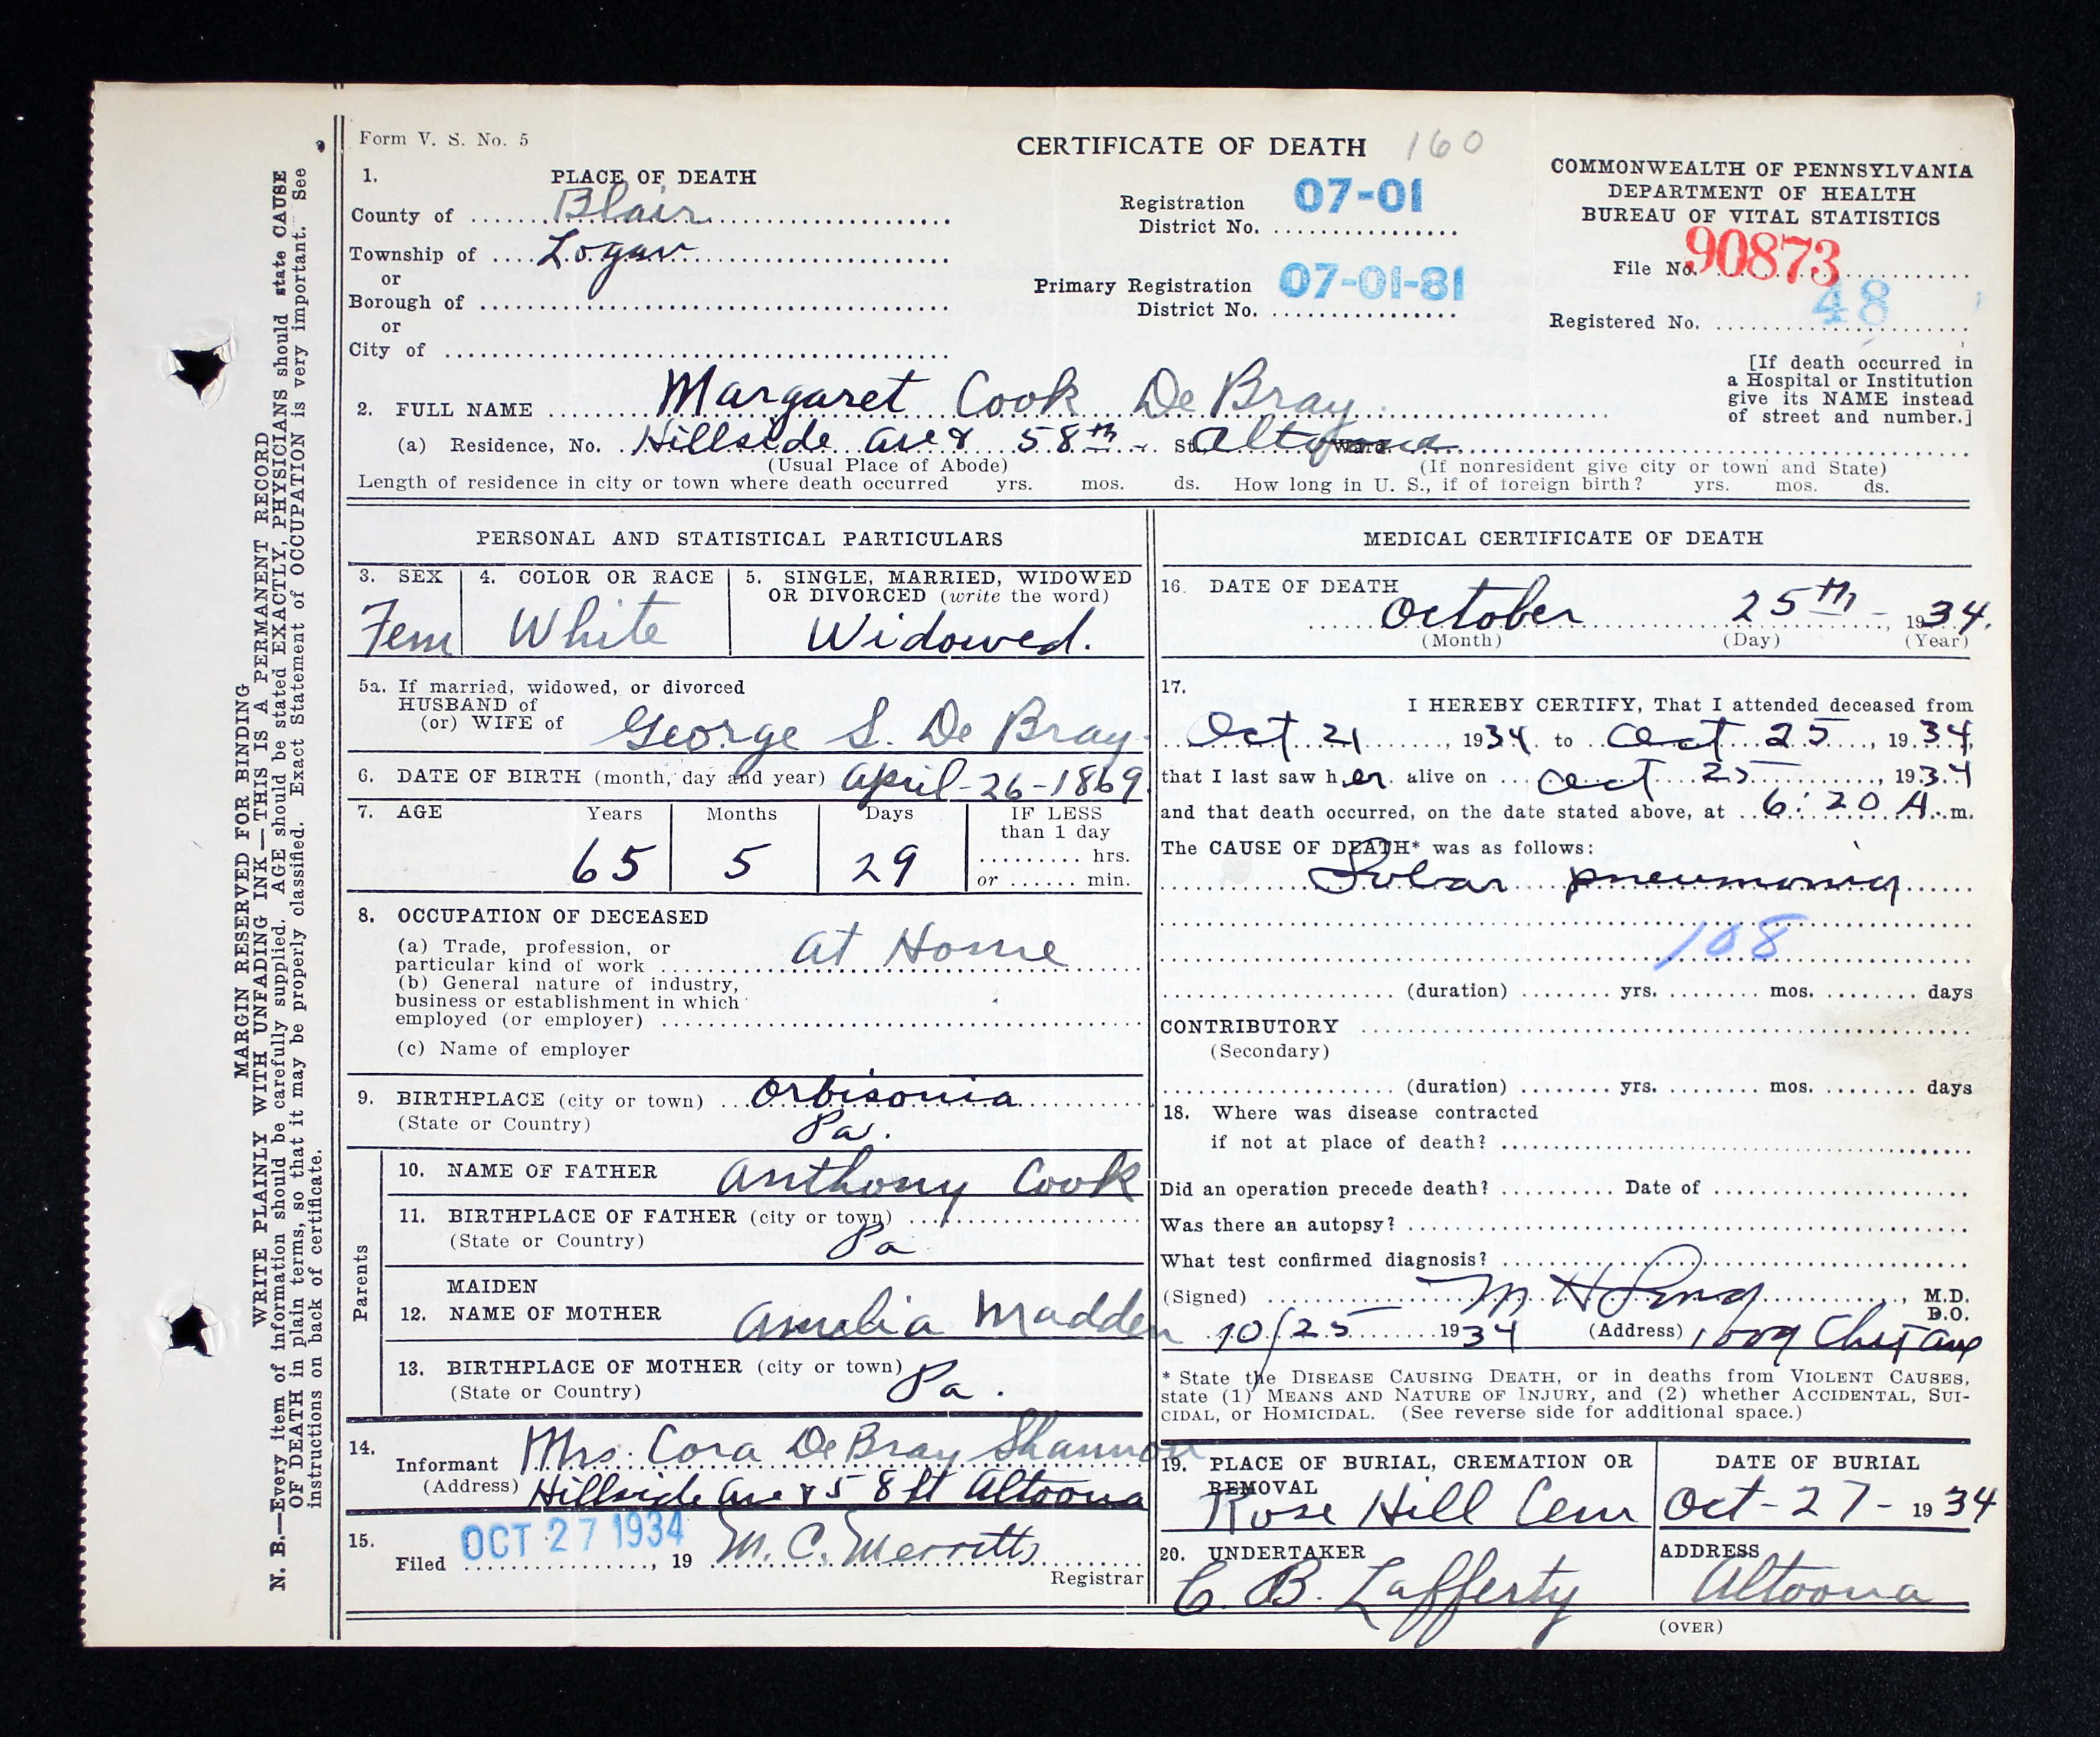 Form V. S. No. 5
CERTIFICATE OF DEATH 160
COMMONWEALTH OF PENNSYLVANIA
DEPARTMENT OF HEALTH
BUREAU OF VITAL STATISTICS
1. PLACE OF DEATH
County of Blair
Township of Logan
or
Borough of
or
City of
Registration
District No. 07-01
Primary Registration
District No. 07-01-81
File No. 90873
Registered No. 48
[If death occurred in
a Hospital or Institution
give its NAME instead
of street and number.]
2. FULL NAME Margaret Cook De Bray
(a) Residence, No. Hillside Ave & 58th St. Altoona Ward.
(Usual Place of Abode) (If nonresident give city or town and State)
Length of residence in city or town where death occurred yrs. mos. ds. How long in U. S., if of foreign birth? yrs. mos. ds.
PERSONAL AND STATISTICAL PARTICULARS
3. SEX
Fem
4. COLOR OR RACE
White
5. SINGLE, MARRIED, WIDOWED
OR DIVORCED (write the word)
Widowed.
5a. If married, widowed, or divorced
HUSBAND of
(or) WIFE of George S. De Bray
6. DATE OF BIRTH (month, day and year) April-26-1869
7. AGE Years Months Days IF LESS
than 1 day
hrs.
or min.
65 5 29
8. OCCUPATION OF DECEASED
(a) Trade, profession, or
particular kind of work at Home
(b) General nature of industry,
business or establishment in which
employed (or employer)
(c) Name of employer
9. BIRTHPLACE (city or town) Orbisonia
(State or Country) Pa.
Parents
10. NAME OF FATHER Anthony Cook
11. BIRTHPLACE OF FATHER (city or town)
(State or Country) Pa
MAIDEN
12. NAME OF MOTHER Amelia Madden
13. BIRTHPLACE OF MOTHER (city or town) Pa.
(State or Country)
14.
Informant Mrs. Cora De Bray Shannon
(Address) Hillside Ave & 58 St Altoona
15.
Filed OCT 27 1934, 19 M. C. Merritts
Registrar
MEDICAL CERTIFICATE OF DEATH
16. DATE OF DEATH
October 25th, 1934.
(Month) (Day) (Year)
17.
I HEREBY CERTIFY, That I attended deceased from
Oct 21, 1934 to Oct 25, 1934,
that I last saw her alive on Oct 25, 1934
and that death occurred, on the date stated above, at 6:20 A.m.
The CAUSE OF DEATH* was as follows:
Lobar pneumonia
108
(duration) yrs. mos. days
CONTRIBUTORY
(Secondary)
(duration) yrs. mos. days
18. Where was disease contracted
if not at place of death?
Did an operation precede death? Date of
Was there an autopsy?
What test confirmed diagnosis?
(Signed) M H, M.D.
D.O.
10/25 1934 (Address) Chest Ave
* State the DISEASE CAUSING DEATH, or in deaths from VIOLENT CAUSES,
state (1) MEANS AND NATURE OF INJURY, and (2) whether ACCIDENTAL, SUI-
CIDAL, or HOMICIDAL. (See reverse side for additional space.)
19. PLACE OF BURIAL, CREMATION OR
REMOVAL
Rose Hill Cem
DATE OF BURIAL
Oct-27-1934
20. UNDERTAKER
C. B. Lafferty
ADDRESS
Altoona
(OVER)
MARGIN RESERVED FOR BINDING
WRITE PLAINLY WITH UNFADING INK—THIS IS A PERMANENT RECORD
N. B.—Every item of information should be carefully supplied. AGE should be stated EXACTLY, PHYSICIANS should state CAUSE
OF DEATH in plain terms, so that it may be properly classified. Exact Statement of OCCUPATION is very important. See
instructions on back of certificate.